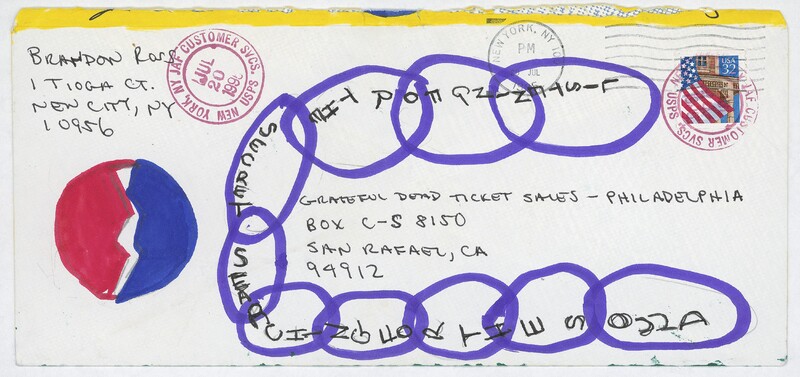 BRANDON ROSS
1 TIOGA CT.
NEW CITY, NY
10956
USPS NEW YORK, NY JAF CUSTOMER SVCS.
JUL
20
NEW YORK, NY
PM
JUL
USA
32
USPS
JAF CUSTOMER SVCS.
LISTENING FOR THE
SECRET SEARCHING FOR THE SOUND
GRATEFUL DEAD TICKET SALES - PHILADELPHIA
BOX C-S 8150
SAN RAFAEL, CA
94912